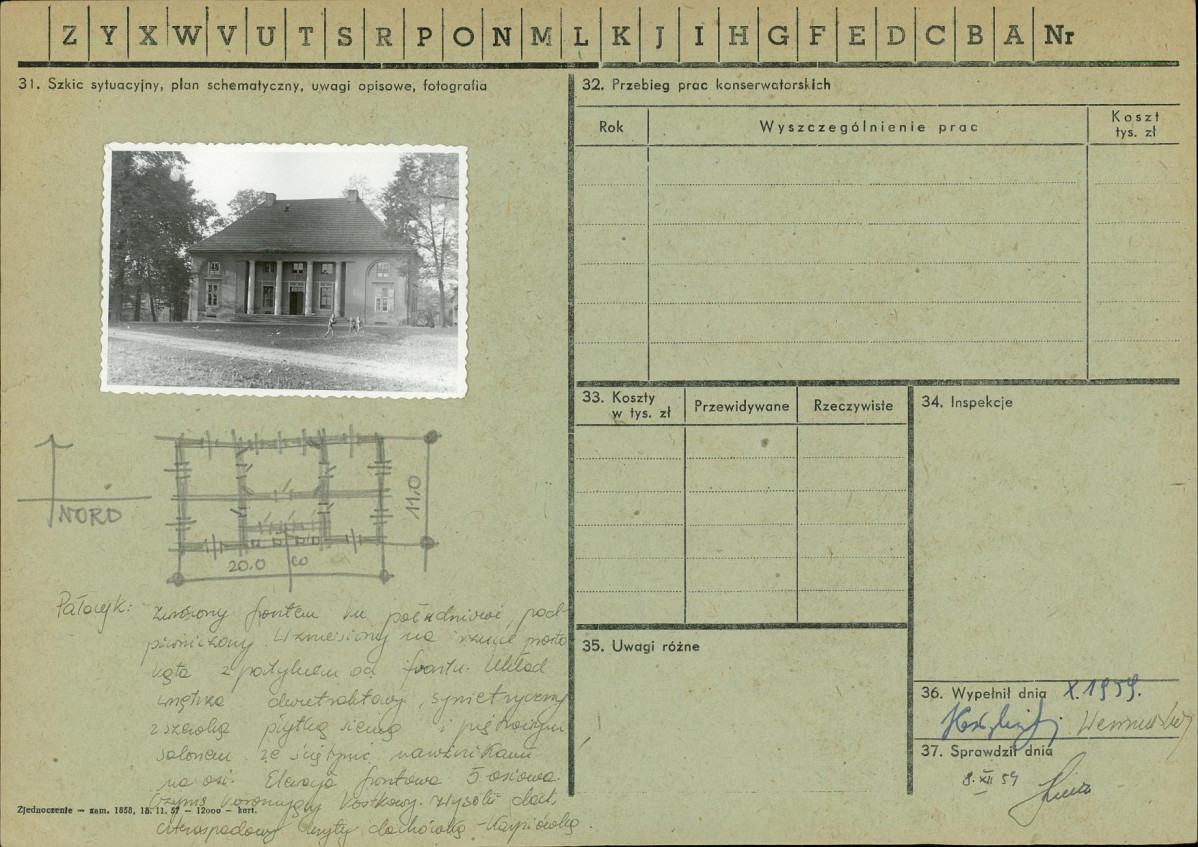 Z Y X W V U T S R P O N M L K J I H G F E D C B A Nr
31. Szkic sytuacyjny, plan schematyczny, uwagi opisowe, fotografia
NORD
11.0
20.0
Pałacyk: zwrócony frontem ku południowi, pod-
piwniczony. Wzniesiony na rzucie prosto
kąta z portykiem od frontu. Układ
wnętrza dwutraktowy, symetryczny
z szeroką płytką sienią i
salonem ze ściętymi narożnikami
na osi. Elewacja frontowa 5 osiowa.
Gzyms koronujący kostkowy. Wysoki dach
czterospadowy kryty dachówką - karpiówką.
Zjednoczenie — zam. 1858, 15. 11. 57 — 12000 — kart.
32. Przebieg prac konserwatorskich
Rok
Wyszczególnienie prac
Koszt
tys. zł
33. Koszty
w tys. zł
Przewidywane
Rzeczywiste
34. Inspekcje
35. Uwagi różne
36. Wypełnił dnia X.1959.
37. Sprawdził dnia
8. XII 59